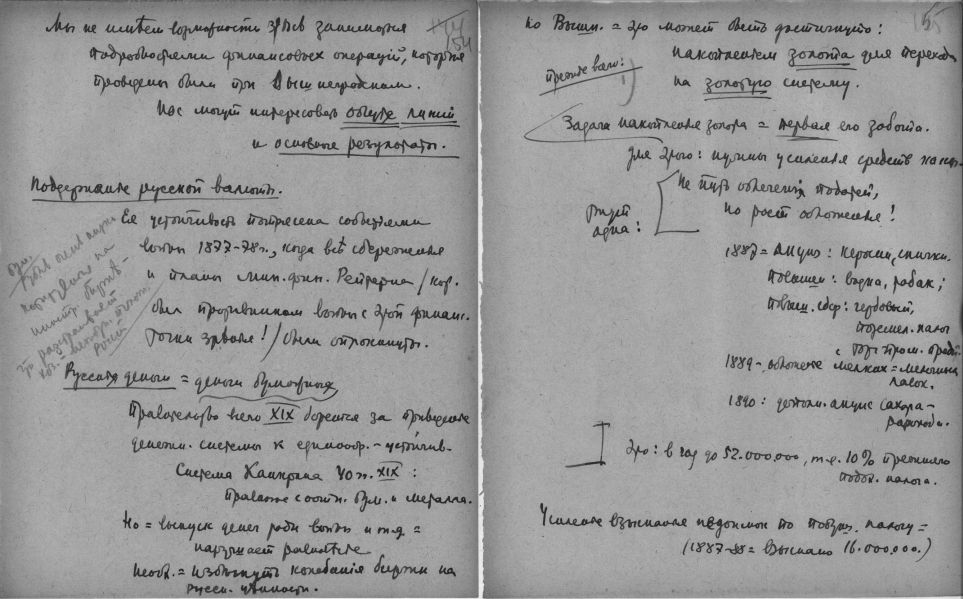 Мы не имѣем возможности здѣсь заниматься
подробностями финансовых операцій, которыя
проведены были при Вышнеградском.
Нас могут интересовать общія линіи
и основные результаты.
Поддержание русской валюты.
Ея устойчивость потрясена событиями
войны 1877-78 г., когда всѣ сбережения
и планы мин. фин. Рейтерна / кот.
был противником войны с этой финанс.
точки зрения! / были опрокинуты.
Русския деньги = деньги бумажныя
Правительство всего XIX борется за приведение
денежн. системы к единообр. - устойчив.
Система Канкрина 40 г. XIX :
правильное соотн. бум. и металла.
Но = выпуск денег ради войны и т.д =
нарушает равновѣсие
Необх. = избѣгнуть колебания биржи на
русск. цѣнности.
155
По Вышн. = это может быть достигнуто:
прежде всего:
накоплением золота для перехода
1)
на золотую систему.
Задача накопления золота = первая его забота.
Для этого: нужны усиления средств казны.
Не путь облегчения податей,
но рост обложения!
1887 = Акциз : керосин, спички.
повышен : водка, табак;
повыш. сбор : гербовый,
поземел. налог
с торг. пром. предп.
1889 - обложение мелких = мельницы
лавок.
1890 : дополн. акциз сахара -
Это : в год до 52.000.000, т.е. 10% прежнего
подох. налога.
Усиление взыскания недоимок по позем. налогу =
(1887-88 = взыскано 16.000.000.)